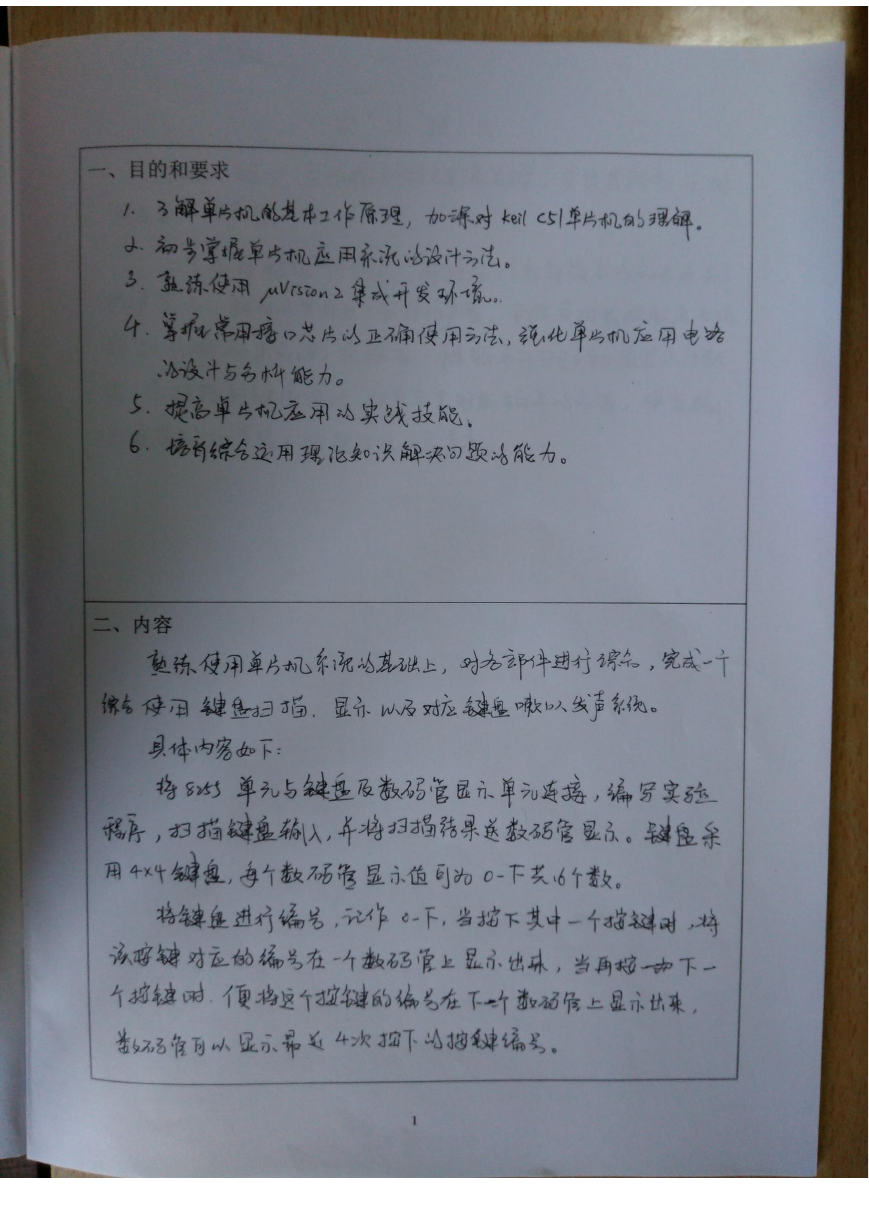 一、目的和要求
1. 了解单片机的基本工作原理，加深对 Keil C51单片机的理解。
2. 初步掌握单片机应用系统的设计方法。
3. 熟练使用 μVision2 集成开发环境。
4. 掌握常用接口芯片的正确使用方法，强化单片机应用电路
的设计与分析能力。
5. 提高单片机应用的实践技能。
6. 培养综合运用理论知识解决问题的能力。
二、内容
熟练使用单片机系统的基础上，对各部件进行综合，完成一个
综合使用键盘扫描．显示以及对应键盘 以发声系统。
具体内容如下：
将8255 单元与键盘及数码管显示单元连接，编写实验
程序，扫描键盘输入，并将扫描结果送数码管显示。键盘采
用4×4键盘，每个数码管显示值可为 0-F共16个数。
将键盘进行编号，记作 0-F，当按下其中一个按键时，将
该按键对应的编号在一个数码管上显示出来，当再按 下一
个按键时．便将这个按键的编号在下一个数码管上显示出来，
数码管可以显示最近4次按下的按键编号。
1